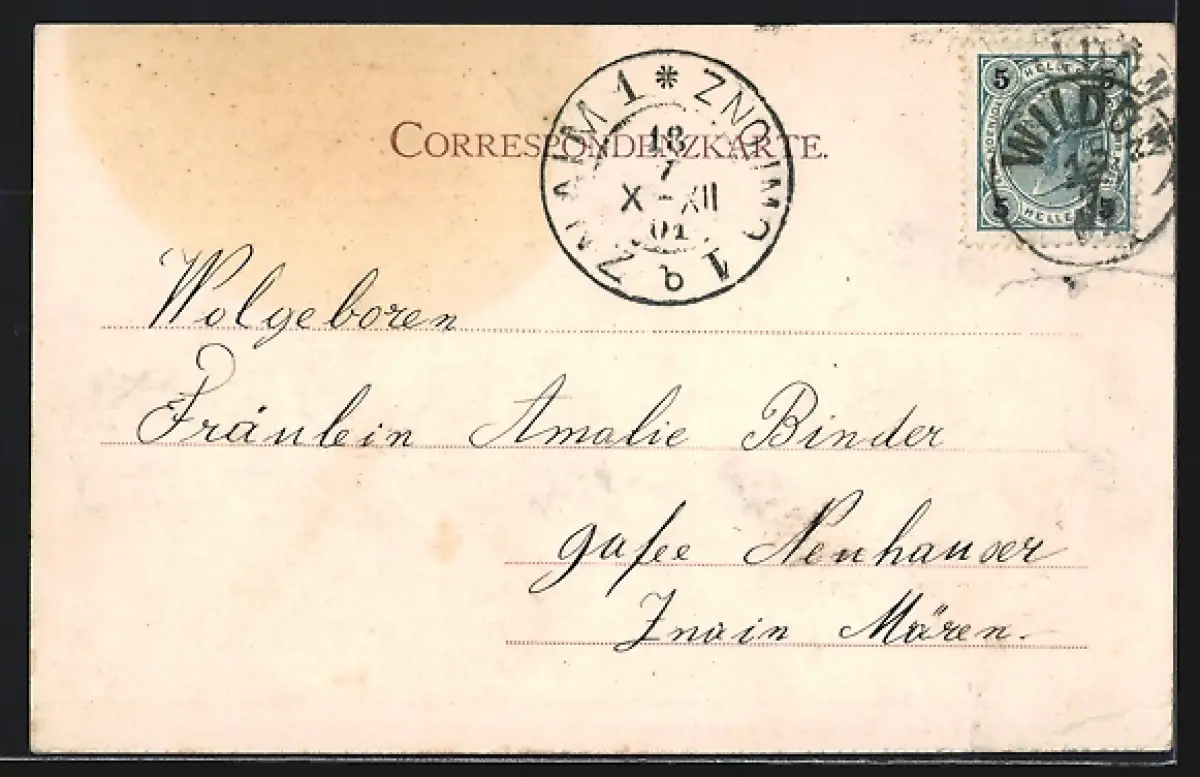 CORRESPONDENZKARTE.
ZNAIM 1 * ZNOJMO 1 b
18
7
X-XII
01
5 HELLER 5
5 HELLER 5
WILDON
Wolgeboren
Fräulein Amalie Binder
gasee Neuhauser
Znain Mären.